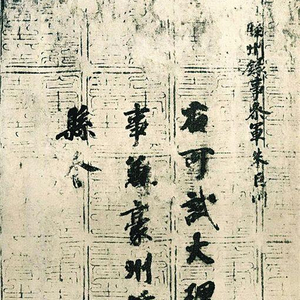 縣州錄事參軍朱良
右可試大理
事兼豪州
縣令